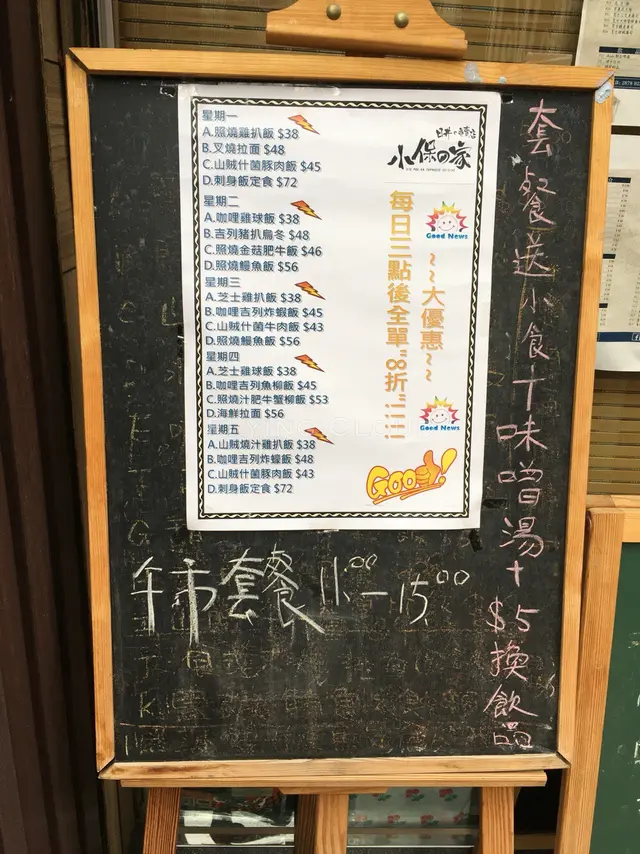 星期一
A.照燒雞扒飯 $38
B.叉燒拉面 $48
C.山賊什菌豚肉飯 $45
D.刺身飯定食 $72
星期二
A.咖哩雞球飯 $38
B.吉列豬扒烏冬 $48
C.照燒金菇肥牛飯 $46
D.照燒鰻魚飯 $56
星期三
A.芝士雞扒飯 $38
B.咖哩吉列炸蝦飯 $45
C.山賊什菌牛肉飯 $43
D.照燒鰻魚飯 $56
星期四
A.芝士雞球飯 $38
B.咖哩吉列魚柳飯 $45
C.照燒汁肥牛蟹柳飯 $53
D.海鮮拉面 $56
星期五
A.山賊燒汁雞扒飯 $38
B.咖哩吉列炸蠔飯 $48
C.山賊什菌豚肉飯 $43
D.刺身飯定食 $72
小保の家
每日三點後全單"8折"!!!!
~~大優惠~~
Good News
Good News
GOOD!
套餐送小食+味噌湯+$5換飲品
午市套餐 11:00-15:00